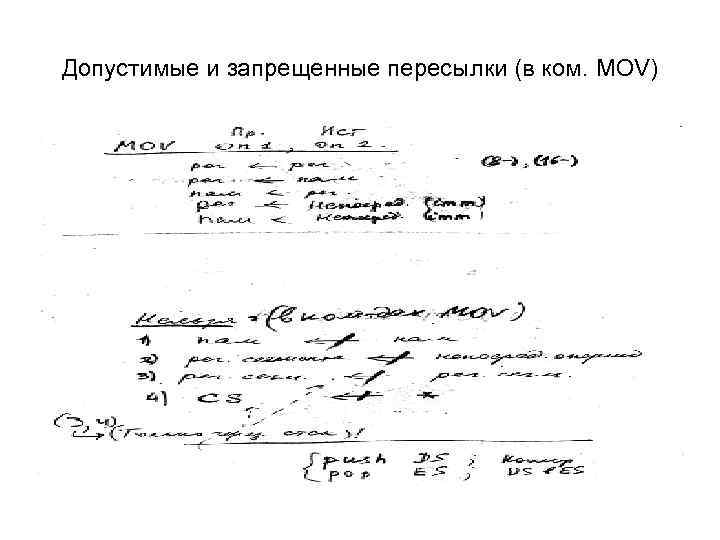 Допустимые и запрещенные пересылки (в ком. MOV)
Пр. Ист
MOV оп 1, оп 2.
рег ← рег. (8-), (16-)
рег. ← пам
пам ← рег.
рег ← Непосред. (imm)
пам ← Непосред imm
Нельзя (в командах MOV)
1) пам ← пам
2) рег. сегмента ← непосред. операнд
3) рег. сегм. ← рег. сегм.
4) CS ← *
(3,4)
→ (Только через стек)!
push DS ; Копир
pop ES ; DS в ES